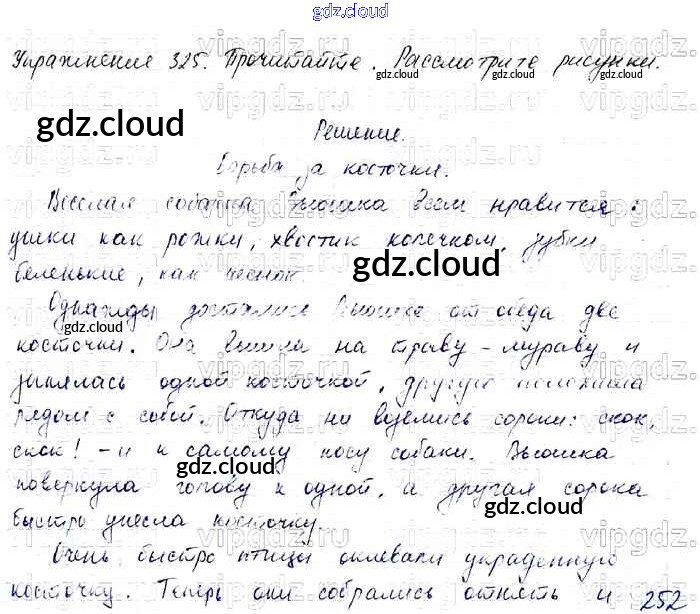 gdz.cloud
Упражнение 325. Прочитайте. Рассмотрите рисунки.
gdz.cloud gdz.cloud gdz.cloud
gdz.cloud
Решение.
Борьба за косточки.
Веселая собачка Вьюшка всем нравится:
ушки как рожки, хвостик колечком, зубки
беленькие, как чеснок.
gdz.cloud
Однажды достались Вьюшке от обеда две
gdz.cloud
косточки. Она вышла на траву-мураву и
занялась одной косточкой, другую положила
рядом с собой. Откуда ни взялись сороки: скок,
скок! - и к самому носу собаки. Вьюшка
gdz.cloud
повернула голову к одной, а другая сорока
gdz.cloud
быстро унесла косточку.
Очень быстро птицы склевали украденную
косточку. Теперь они собрались отнять и
252